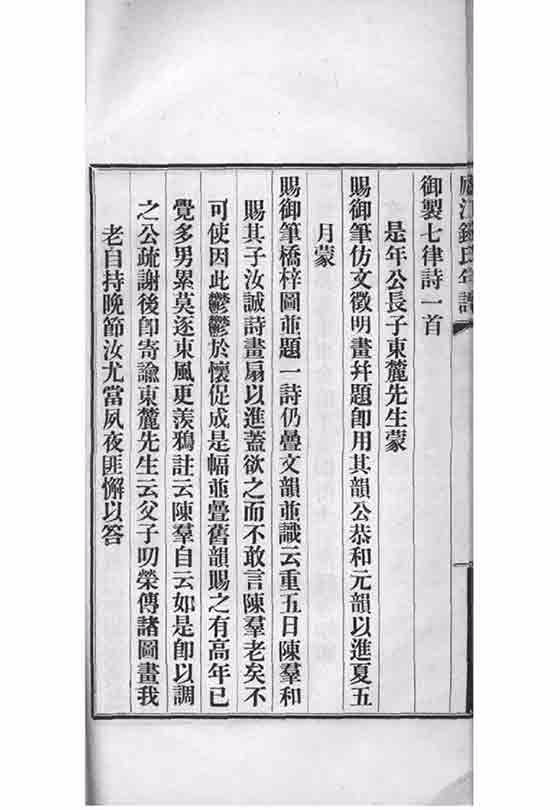 廬江錢氏年譜
御製七律詩一首
是年公長子東麓先生蒙
賜御筆仿文徵明畫幷題卽用其韻公恭和元韻以進夏五
月蒙
賜御筆橋梓圖並題一詩仍疊文韻並識云重五日陳羣和
賜其子汝誠詩畫扇以進蓋欲之而不敢言陳羣老矣不
可使因此鬱鬱於懷促成是幅並疊舊韻賜之有高年已
覺多男累莫逐東風更羨鴉註云陳羣自云如是卽以調
之公疏謝後卽寄諭東麓先生云父子叨榮傳諸圖畫我
老自持晚節汝尤當夙夜匪懈以答